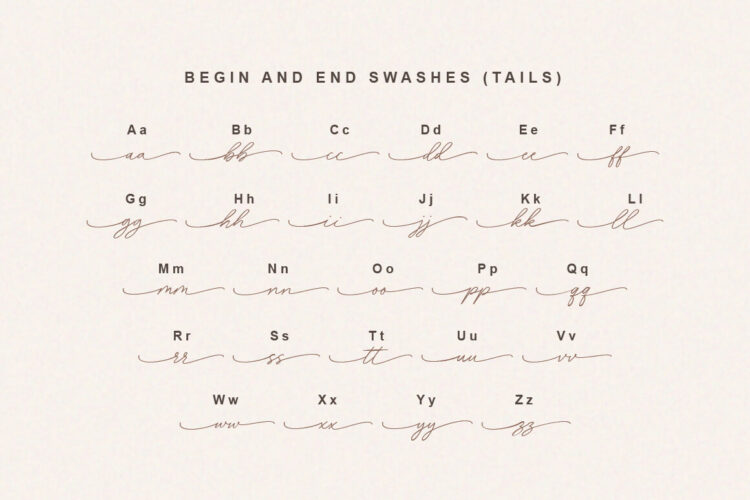 BEGIN AND END SWASHES (TAILS)
Aa Bb Cc Dd Ee Ff
aa bb cc dd ee ff
Gg Hh Ii Jj Kk Ll
gg hh ii jj kk ll
Mm Nn Oo Pp Qq
mm nn oo pp qq
Rr Ss Tt Uu Vv
rr ss tt uu vv
Ww Xx Yy Zz
ww xx yy zz